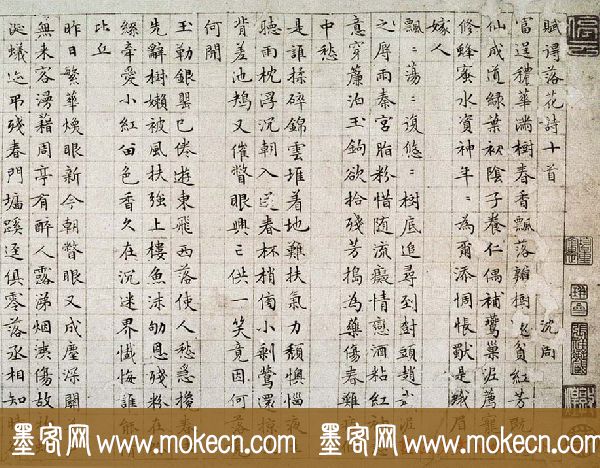 赋得落花诗十首
沈周
富逞穠華满樹春香飄落瓣樹還貧紅芳既
仙成道綠葉初陰子養仁偶補鶯巢泥薦寵
修蜂蜜水資神年〻為爾添惆悵獸是蛾眉
嫁人
飄〻蕩〻復悠〻樹底追尋到樹頭趙
之辱雨秦宮脂粉惜随流癡情戀酒粘紅
意穿簾泊玉鈎欲拾残芳搗為藥傷春難
中愁
是誰揉碎錦雲堆着地難扶氣力頹懊惱夜
聽雨枕浮沉朝入送春杯梢傍小剩鶯還掠
背羞池鴂又催瞥眼興亡供一笑竟因何落
何開
玉勒銀罌已倦遊東飛西落使人愁急攙春
先辭樹嬾被風扶強上樓魚沫劬恩残粉在
絲牽愛小紅留色香久在沉迷界懺悔誰能
比丘
昨日繁華煥眼新今朝瞥眼又成塵深關
無来客漫藉周亭有酔人露涕烟洟傷故
蜒蟻迩吊残春門墻蹊逕俱零落丞相知時
墨客网 www.mokecn.com 墨客网 www.mokecn.com